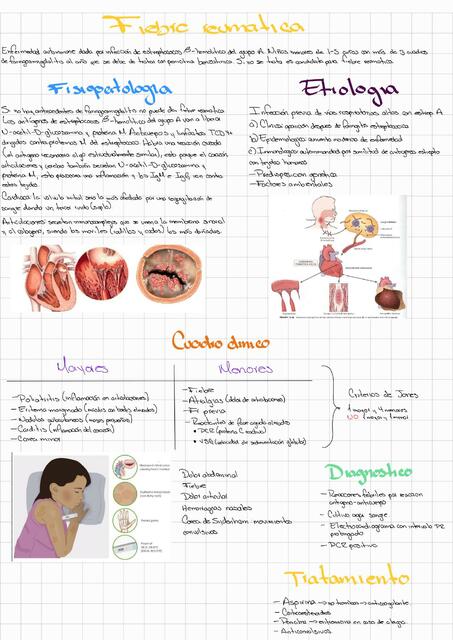 Fiebre reumática
Enfermedad autoinmune dada por infección de estreptococos β-hemolítico del grupo A. Niños menores de 1-5 años con más de 3 cuadros
de faringoamigdalitis al año que se debe de tratar con penicilina benzatínica. Si no se trata es candidato para fiebre reumática.
Fisiopatología
Si no hay antecedentes de faringoamigdalitis no puede dar fiebre reumática
Los antígenos de estreptococos β-hemolítico del grupo A van a liberar
N-acetil-D-glucosamina y proteína M. Anticuerpos y linfocitos TCD4+
dirigidos contra proteínas M del estreptococo. Habrá una reacción cruzada
(el antígeno reconocerá algo estructuralmente similar), esto porque el corazón
articulaciones y corteza también N-acetil-D-glucosamina y
proteína M, esto ocasiona una inflamación y las IgM e IgG van contra
estos tejidos.
Cardiaco: la válvula mitral será la más afectada por una regurgitación de
sangre dando un tercer ruido (soplo)
Articulaciones: inmunocomplejos que se unen a la membrana sinovial
y al colágeno, siendo las móviles (rodillas y codos) las más dañadas.
Etiología
Infección previa de vías respiratorias altas con estrep A.
a) Clínica: aparición después de faringitis estreptocócica
b) Epidemiológica: aumento notorio de enfermedad
c) Inmunológica: autoinmunidad por similitud de antígenos estrepto
con tejidos humanos
- Predisposición genética
- Factores ambientales
Cuadro clínico
Mayores
- Poliartritis (inflamación en articulaciones)
- Eritema marginado (máculas con bordes elevados)
- Nódulos subcutáneos (masas pequeñas)
- Carditis (inflamación del corazón)
- Corea minor
Menores
- Fiebre
- Artralgias (dolor de articulaciones)
- FR previa
- Reactantes de fase aguda elevados
• PCR (proteína C reactiva)
• VSG (velocidad de sedimentación globular)
Criterios de Jones
1 mayor y 2 menores
NO (mayor y 1 menor)
Dolor abdominal
Fiebre
Dolor articular
Hemorragias nasales
Corea de Sydenham: movimientos
convulsivos
Diagnóstico
- Reacciones febriles por reacción
antígeno-anticuerpo
- Cultivo agar sangre
- Electrocardiograma con intervalo PR
prolongado
- PCR positiva
Tratamiento
- Aspirina → no trombos → anticoagulante
- Corticoesteroides
- Penicilina → eritromicina en caso de alergia
- Anticonvulsivos